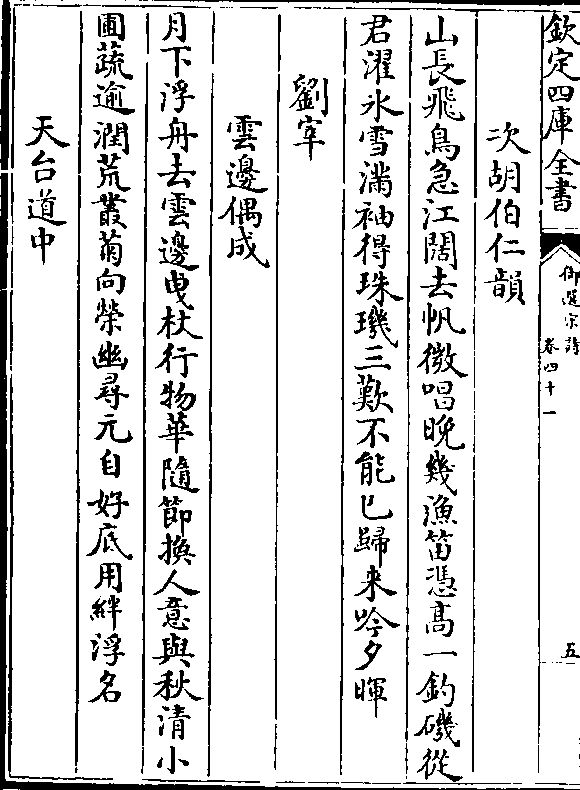 欽定四庫全書
御選宋詩
卷四十一
五
次胡伯仁韻
山長飛鳥急江闊去帆微唱晚幾漁笛憑高一釣磯從
君濯氷雪滿袖得珠璣三歎不能已歸来吟夕暉
劉宰
雲邊偶成
月下浮舟去雲邊曳杖行物華隨節換人意與秋清小
圃蔬逾潤荒叢菊向榮幽尋元自好底用絆浮名
天台道中